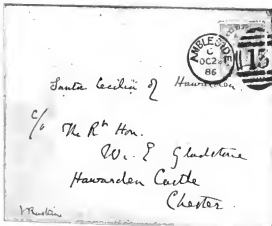 AMBLESIDE
C
OC 2
86
13
Santa Cecilia of Hawarden
c/o The Rt Hon.
W. E Gladstone
Hawarden Castle
Chester.
J Ruskin